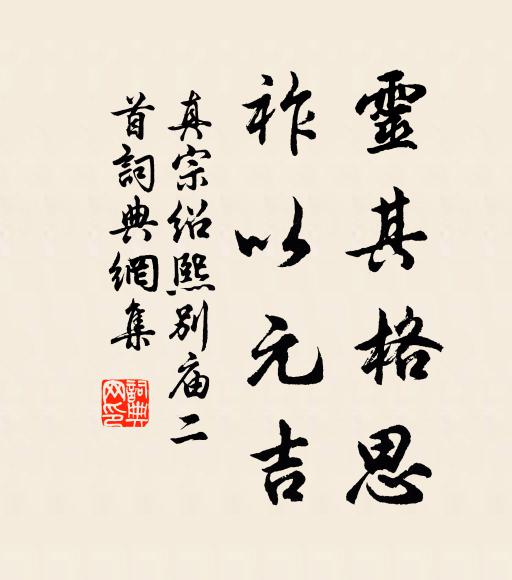 靈其格思
祚以元吉
真宗绍熙別庙二
首詞典網集
詞典
网印